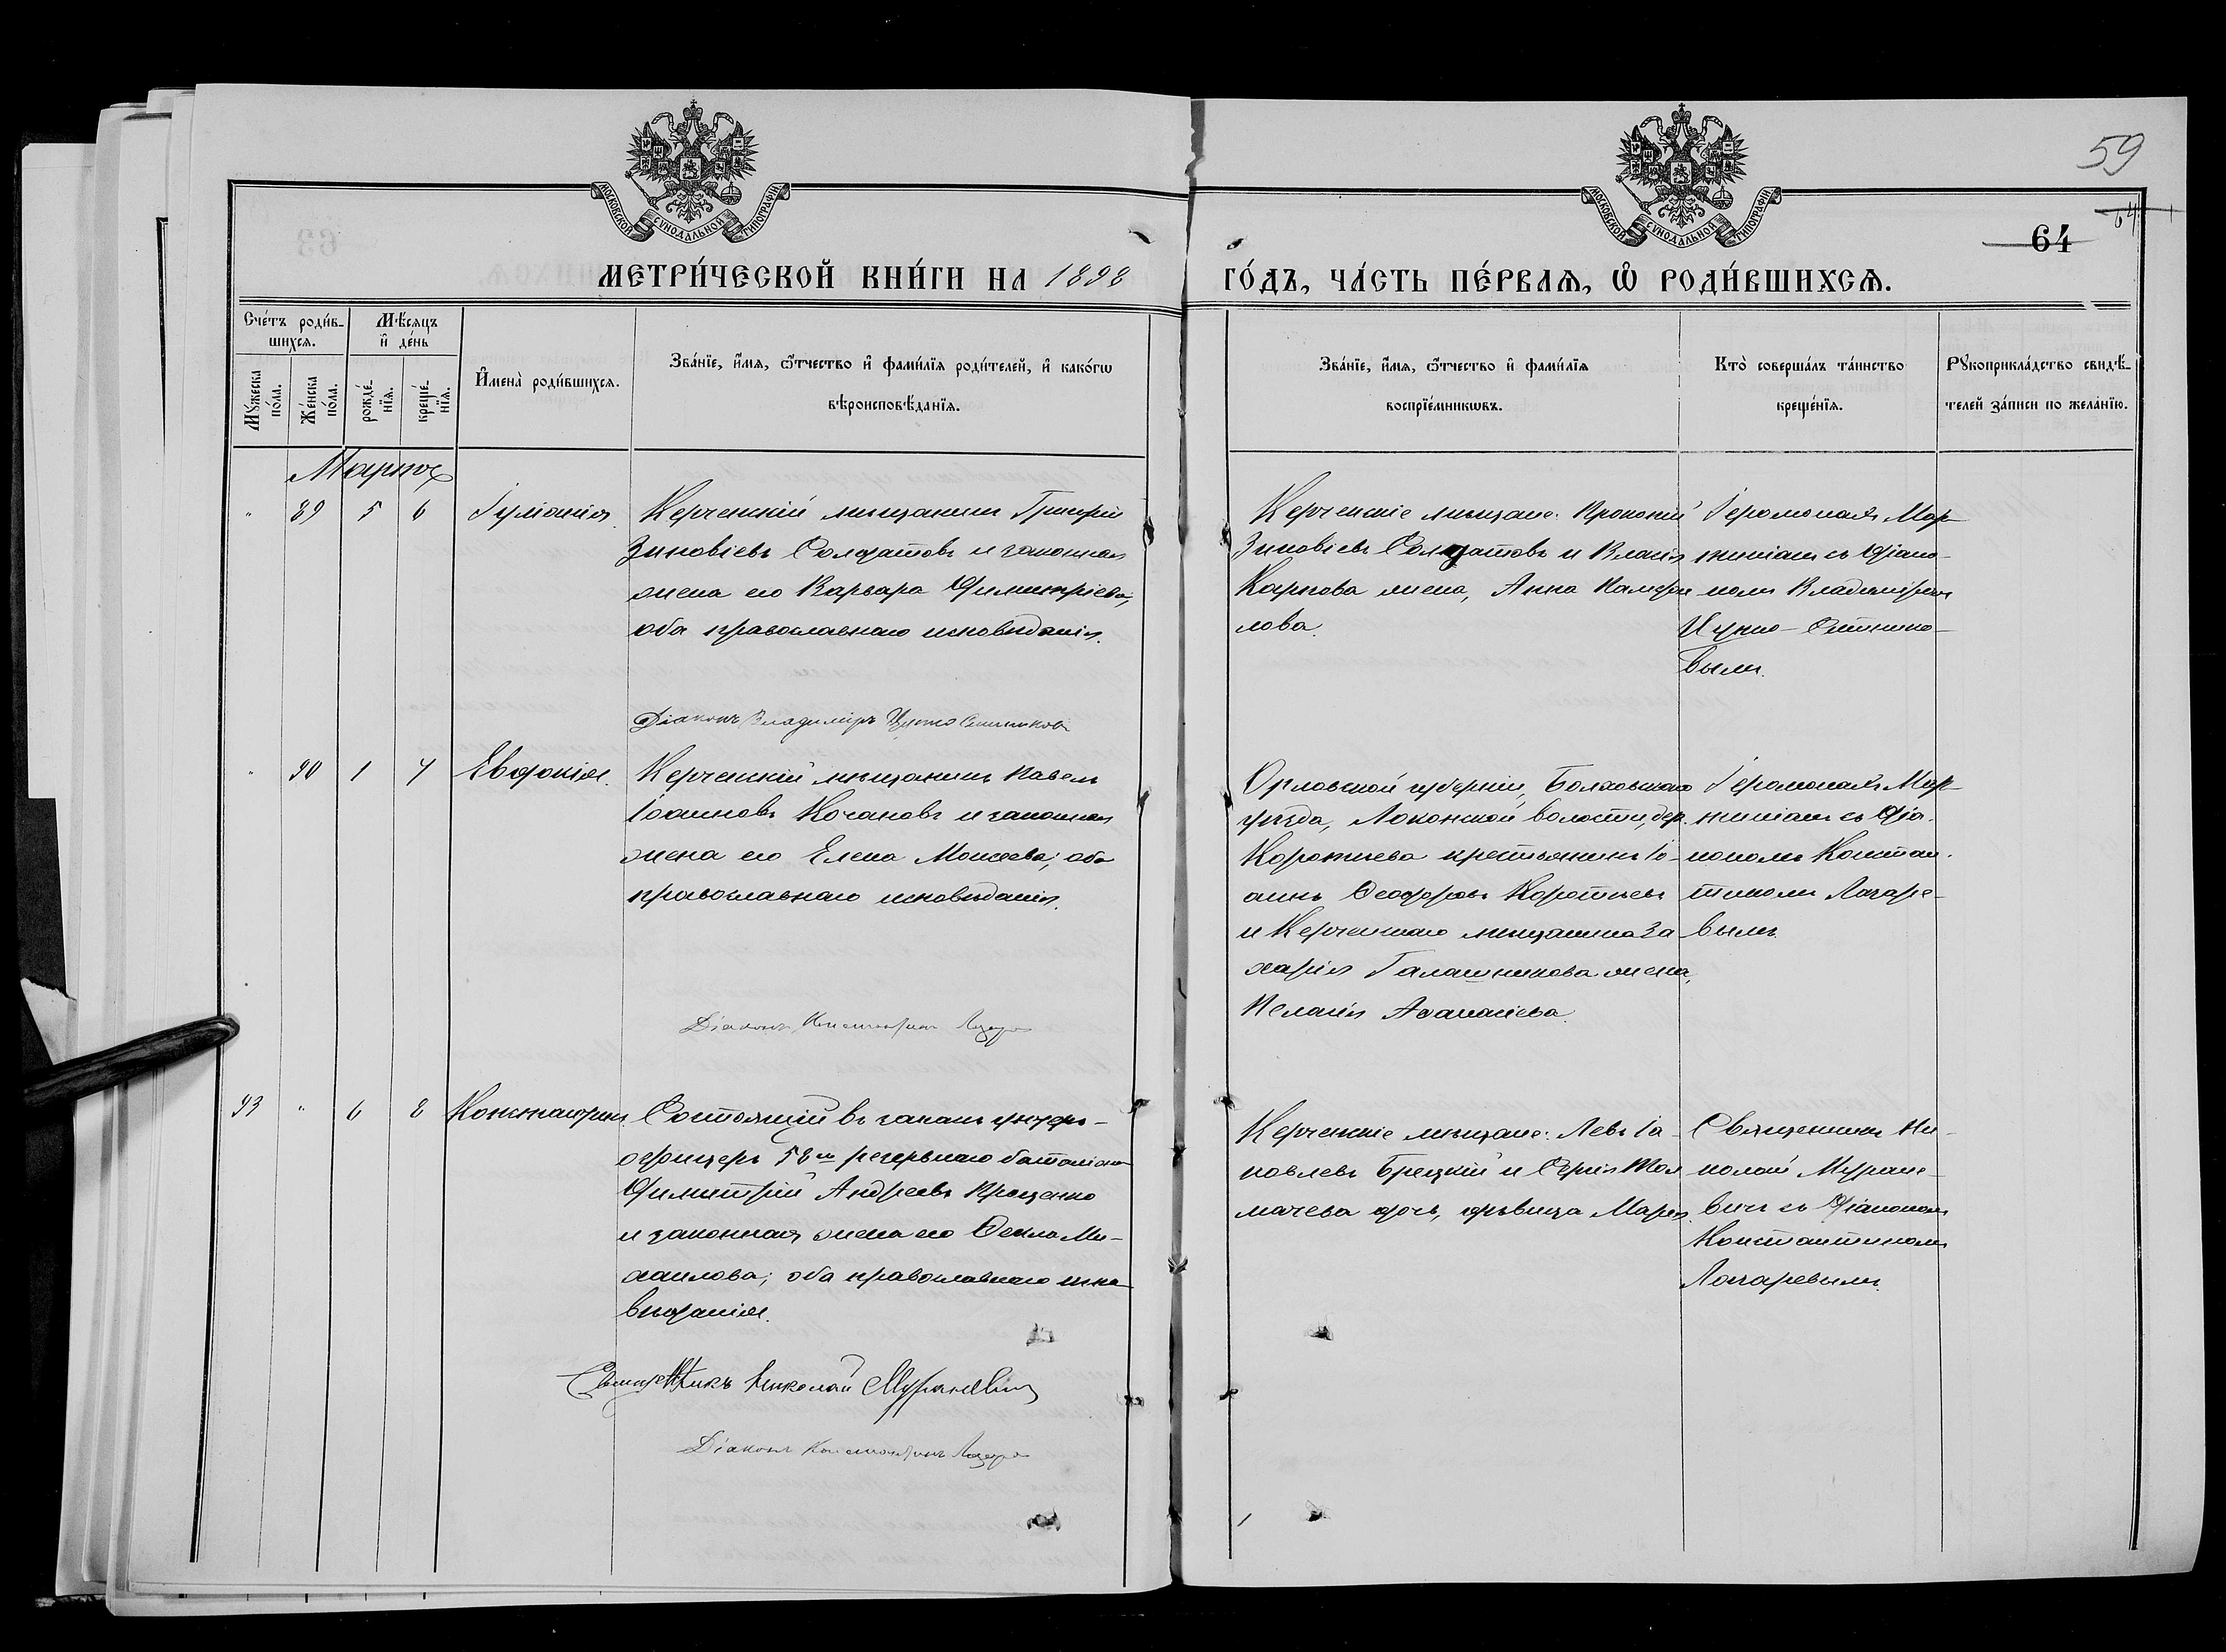 59
64
64
МОСКОВСКОЙ СѴНОДАЛЬНОЙ ТИПОГРАФІИ
МОСКОВСКОЙ СѴНОДАЛЬНОЙ ТИПОГРАФІИ
МЕТРИ́ЧЕСКОЙ КНИ́ГИ НА 1898
ГО́ДЪ, ЧА́СТЬ ПЕ́РВАѦ, Ѡ҆ РОДИ́ВШИХСѦ.
Сче́тъ роди́в-
шихсѧ.
Мѣ́сяцъ
и҆ де́нь
Мꙋ́жеска
по́ла.
Же́нска
по́ла.
рожде́-
нїѧ.
креще́-
нїѧ.
И҆мена̀ роди́вшихсѧ.
Зва́нїе, и҆́мѧ, ѻ҆́тчество и҆ фами́лїѧ роди́телей, и҆ како́гѡ
вѣроисповѣ́данїѧ.
Зва́нїе, и҆́мѧ, ѻ҆́тчество и҆ фами́лїѧ
воспрїе́мникѡвъ.
Кто̀ соверша́лъ та́инство
креще́нїѧ.
Рꙋкоприкла́дство свидѣ́-
телей за́писи по жела́нїю.
Мартъ
" 89 5 6 Іуліанія
Керченскій мѣщанинъ Григорій
Зиновіевъ Солдатовъ и законная
жена его Варвара Димитріева,
оба православнаго исповѣданія.
Діаконъ Владиміръ
Керченскіе мѣщане: Прокопій
Зиновіевъ Солдатовъ и Власія
Карпова жена, Анна Памфи
лова.
Іеромонахъ Мар-
тиніанъ съ Діако-
номъ Владиміромъ
выми.
" 90 1 4 Евдокія.
Керченскій мѣщанинъ Павелъ
Іоанновъ Кочановъ и законная
жена его Елена Моисеева; оба
православнаго исповѣданія.
Діаконъ Константинъ Лазаре
Орловской губерніи, Болховскаго
уѣзда, Локонской волости, дер.
Коротеева крестьянинъ Іо-
аннъ Ѳеодоровъ Коротеевъ
и Керченскаго мѣщанина За
харія Галашникова жена,
Пелагія Аѳанасіева.
Іеромонахъ Мар-
тиніанъ съ Діа-
кономъ Констан-
тиномъ Лазаре-
вымъ.
93 " 6 8 Константинъ
Состоящій въ запасѣ унтеръ-
офицеръ 58го резервнаго баталіона
Димитрій Андреевъ Проценко
и законная жена его Ѳекла Ми-
хаилова; оба православнаго испо-
вѣданія.
Священникъ Николай Мураневичъ
Діаконъ Константинъ Лазаре
Керченскіе мѣщане: Левъ Іа-
ковлевъ Брецкій и Сергія Тол
мачева дочь, дѣвица Марія.
Священникъ Ни-
колай Муране-
вичъ съ Діакономъ
Константиномъ
Лазаревымъ.